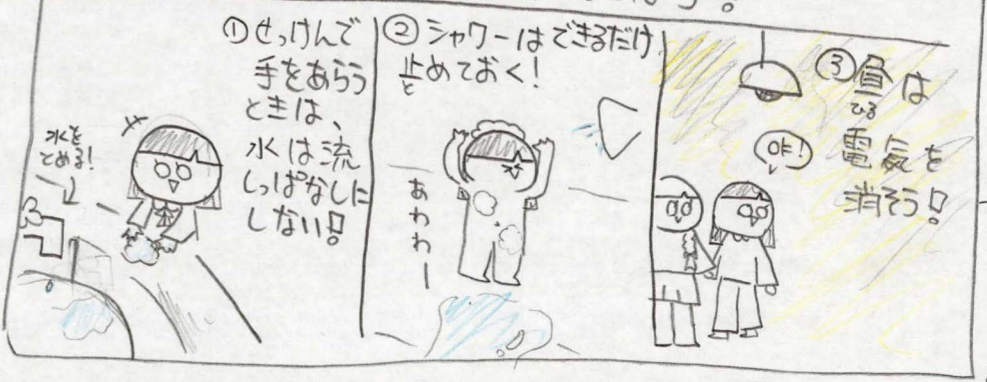 ①せっけんで
手をあらう
ときは、
水は流
しっぱなしに
しない!
水を
とめる!
②シャワーはできるだけ
止めておく!
と
あわわー
③昼は
ひる
電気を
消そう!